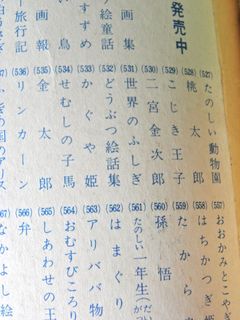 発売中
画集
絵童話
すずめ
鳥
画報
旅行記
(527) たのしい動物園
(528) 桃太郎
(529) こじき王子
(530) 二宮金次郎
(531) 世界のふしぎ
(532) どうぶつ絵話集
(533) かぐや姫
(534) せむしの子馬
(535) 金太郎
(536) リンカーン
の国のアリス
(557) おおかみとこやぎ
(558) はちかつぎ姫
(559) たから
(560) 孫悟
(561) たのしい一年生
(562) はまぐり
(563) アリババ物
(564) おむすびころり
(565) しあわせの王
(566) 弁
なかよし絵